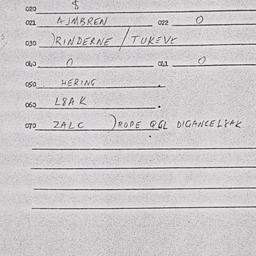 020 $
021 AJMBREN 022 0
030 )RINDERNE / TUKEVE
040 0 041 0
050 HERING .
060 L8AK .
070 ZALC )ROPE QGL DIGANCEL8AK